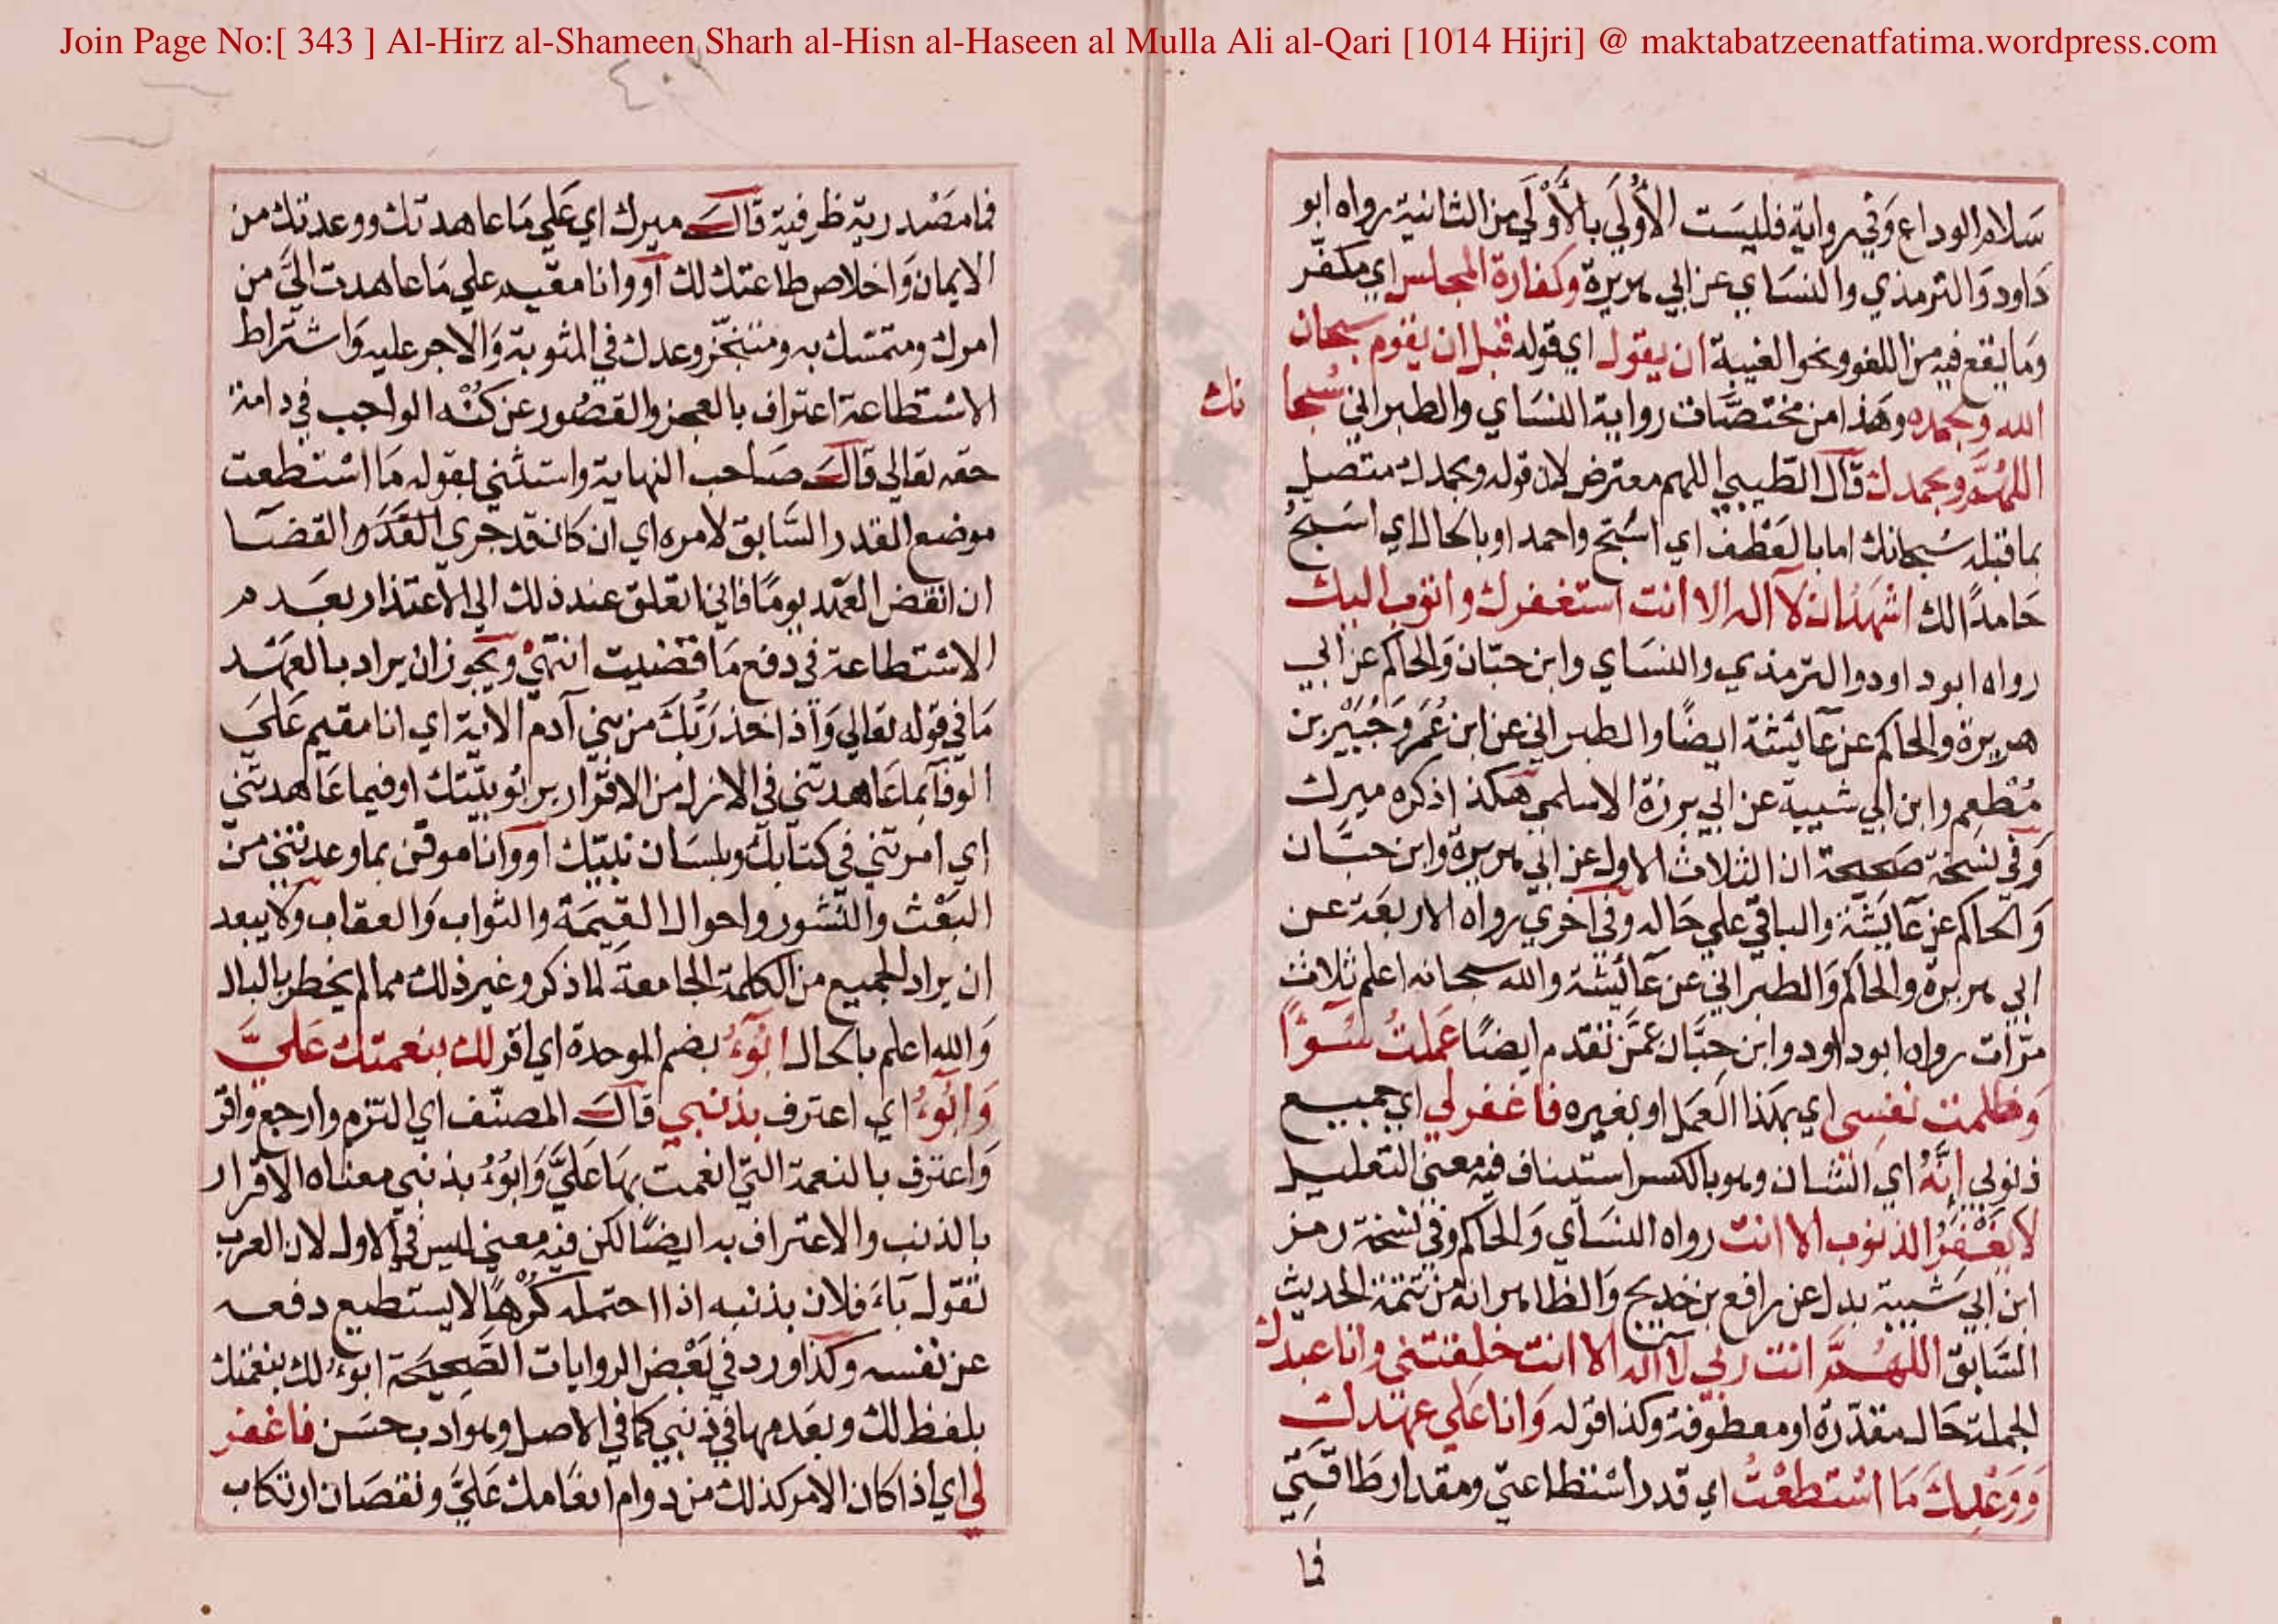 Join Page No:[ 343 ] Al-Hirz al-Shameen Sharh al-Hisn al-Haseen al Mulla Ali al-Qari [1014 Hijri] @ maktabatzeenatfatima.wordpress.com
٤٠٢
سَلام الوداع وَفي رواية فليسَت الأُولَى بالأَوْلَى من الثانية رواه ابو
دَاود وَالترمذي والنسَاي عن ابي هريرة وكفارة المجلس اي مكفّر
وَما يقع فيه من اللغو ونحو الغيبة ان يقول اي قوله قبل ان يقوم سبحان
الله وبحمده وهَذا من مختصَّات رواية النسَاي والطبراني سُبحا نك
اللهُمَّ وبحمدك قال الطيبي اللهم معترض لان قوله وبحمدك متصل
بما قبله سُبحانك اما بالعَطْف اي اسَبّح واحمد او بالحال اي اسَبّحُ
حَامداً لك اشهَدُ ان لا اله الا انت استغفرك واتوب اليك
رواه ابو داود والترمذي والنسَاي وابن حبّان وَالحاكم عن ابي
هريرة والحاكم عن عَايشة ايضًا والطبراني عن ابن عُمَر وَجُبَيْر بن
مُطْعِم وابن ابي شيبة عن ابي برزة الاسلمي هكذا ذكره ميرك
وَفي نسخة صَحيحة ان الثلاث الاول عن ابي هريرة وابن حبَّان
وَالحاكم عن عَايشة والباقي علي حَاله وفي اخري رواه الاربعَة عن
ابي هريرة والحاكم وَالطبراني عن عَائيشة والله سبحانه اعلم ثلاث
مرّات رواه ابو داود وابن حبَّان عَمَّن تقدم ايضًا عَملتُ سُوءًا
وَظلمت نفسِي اي بهَذا العَمَل او بغيره فاغفر لي اي جميع
ذنوبي إنَّهُ اي الشان وهو بالكسر استيناف فيه معنى التعليل
لا يَغْفِرُ الذنوب الا انت رواه النسَاي وَالحاكم وفي نسخة رمز
ابن ابي شَيبة بدل عن رافع بن خديج وَالظاهر انه من تتمّة الحديث
السَّابق اللهُمَّ انت ربي لا اله الا انت خلقتني وانا عبدك
الجملة حَال مقدّرة او معطوفة وكذا قوله وَانا عَلى عهدك
وَوَعْدِكَ مَا اسْتطعْتُ اي قدر اسْتطاعتي ومقدار طَاقَتِي
فما
فما مصْدرية ظرفية قالَ ميرك اي عَلي مَا عاهدتك ووعدتك من
الايمان وَاخلاص طاعتك لك او وانا مقيم علي مَا عاهدت اليَّ من
امرك ومتمسّك به ومتنجّز وعدك في المثوبة وَالاجر عليه وَاشتراط
الاسْتطاعة اعتراف بالعجز والقصُور عن كُنْه الواجب في دامة
حقه تعَالي قالَ صَاحب النهاية واستثني بقوله مَا اسْتطعت
موضع القدر السَّابق لامره اي ان كان قد جري القَدَر والقضَا
ان انقض العَهْد يومًا فاني اتعلق عند ذلك الي الاعتذار بعَدم
الاسْتطاعة في دفع مَا قضيت انتهيٰ ويجوز ان يراد بالعهْد
مَا في قوله تعَالي وَاذ اخذ رَبُّكَ من بني آدم الاية اي انا مقيم عَلَي
الوفا بما عَاهدتني في الازل من الاقرار بربُوبيّتك او فيما عَاهدتني
اي امرتني في كتابك وبلسَان نبيّك او وانا موقن بما وعدتني من
البَعْث والنّشور واحوال القيمَة والثواب وَالعقاب ولا يبعد
ان يراد الجميع من الكلمة الجامعة لما ذكر وغير ذلك مما لم يخطر بالبال
وَالله اعلم بالحال ابُوءُ بضم الموحدة اي اقر لك بنعمتك عَليَّ
وَابُوءُ اي اعترف بذنبي قالَ المصنّف اي التزم وارجع واقرّ
وَاعترف بالنعمة التي انعمت بهَا عَليَّ وَابُوءُ بذنبي معناه الاقرار
بالذنب والاعتراف به ايضًا لكن فيه معني ليس في الاول لان العرب
تقول بَآءَ فلان بذنبه اذا احتمله كُرْهًا لا يستطيع دفعه
عن نفسه وكذا ورد في بَعْض الروايات الصَّحِيحَة ابوءُ لك بنعمتك
بلفظ لك وبعَدمها في ذنبي كما في الاصل وهو ادب حسَن فاغفر
لي اي اذا كان الامر كذلك من دوام انعَامك عَليَّ ونقصَان ارتكاب